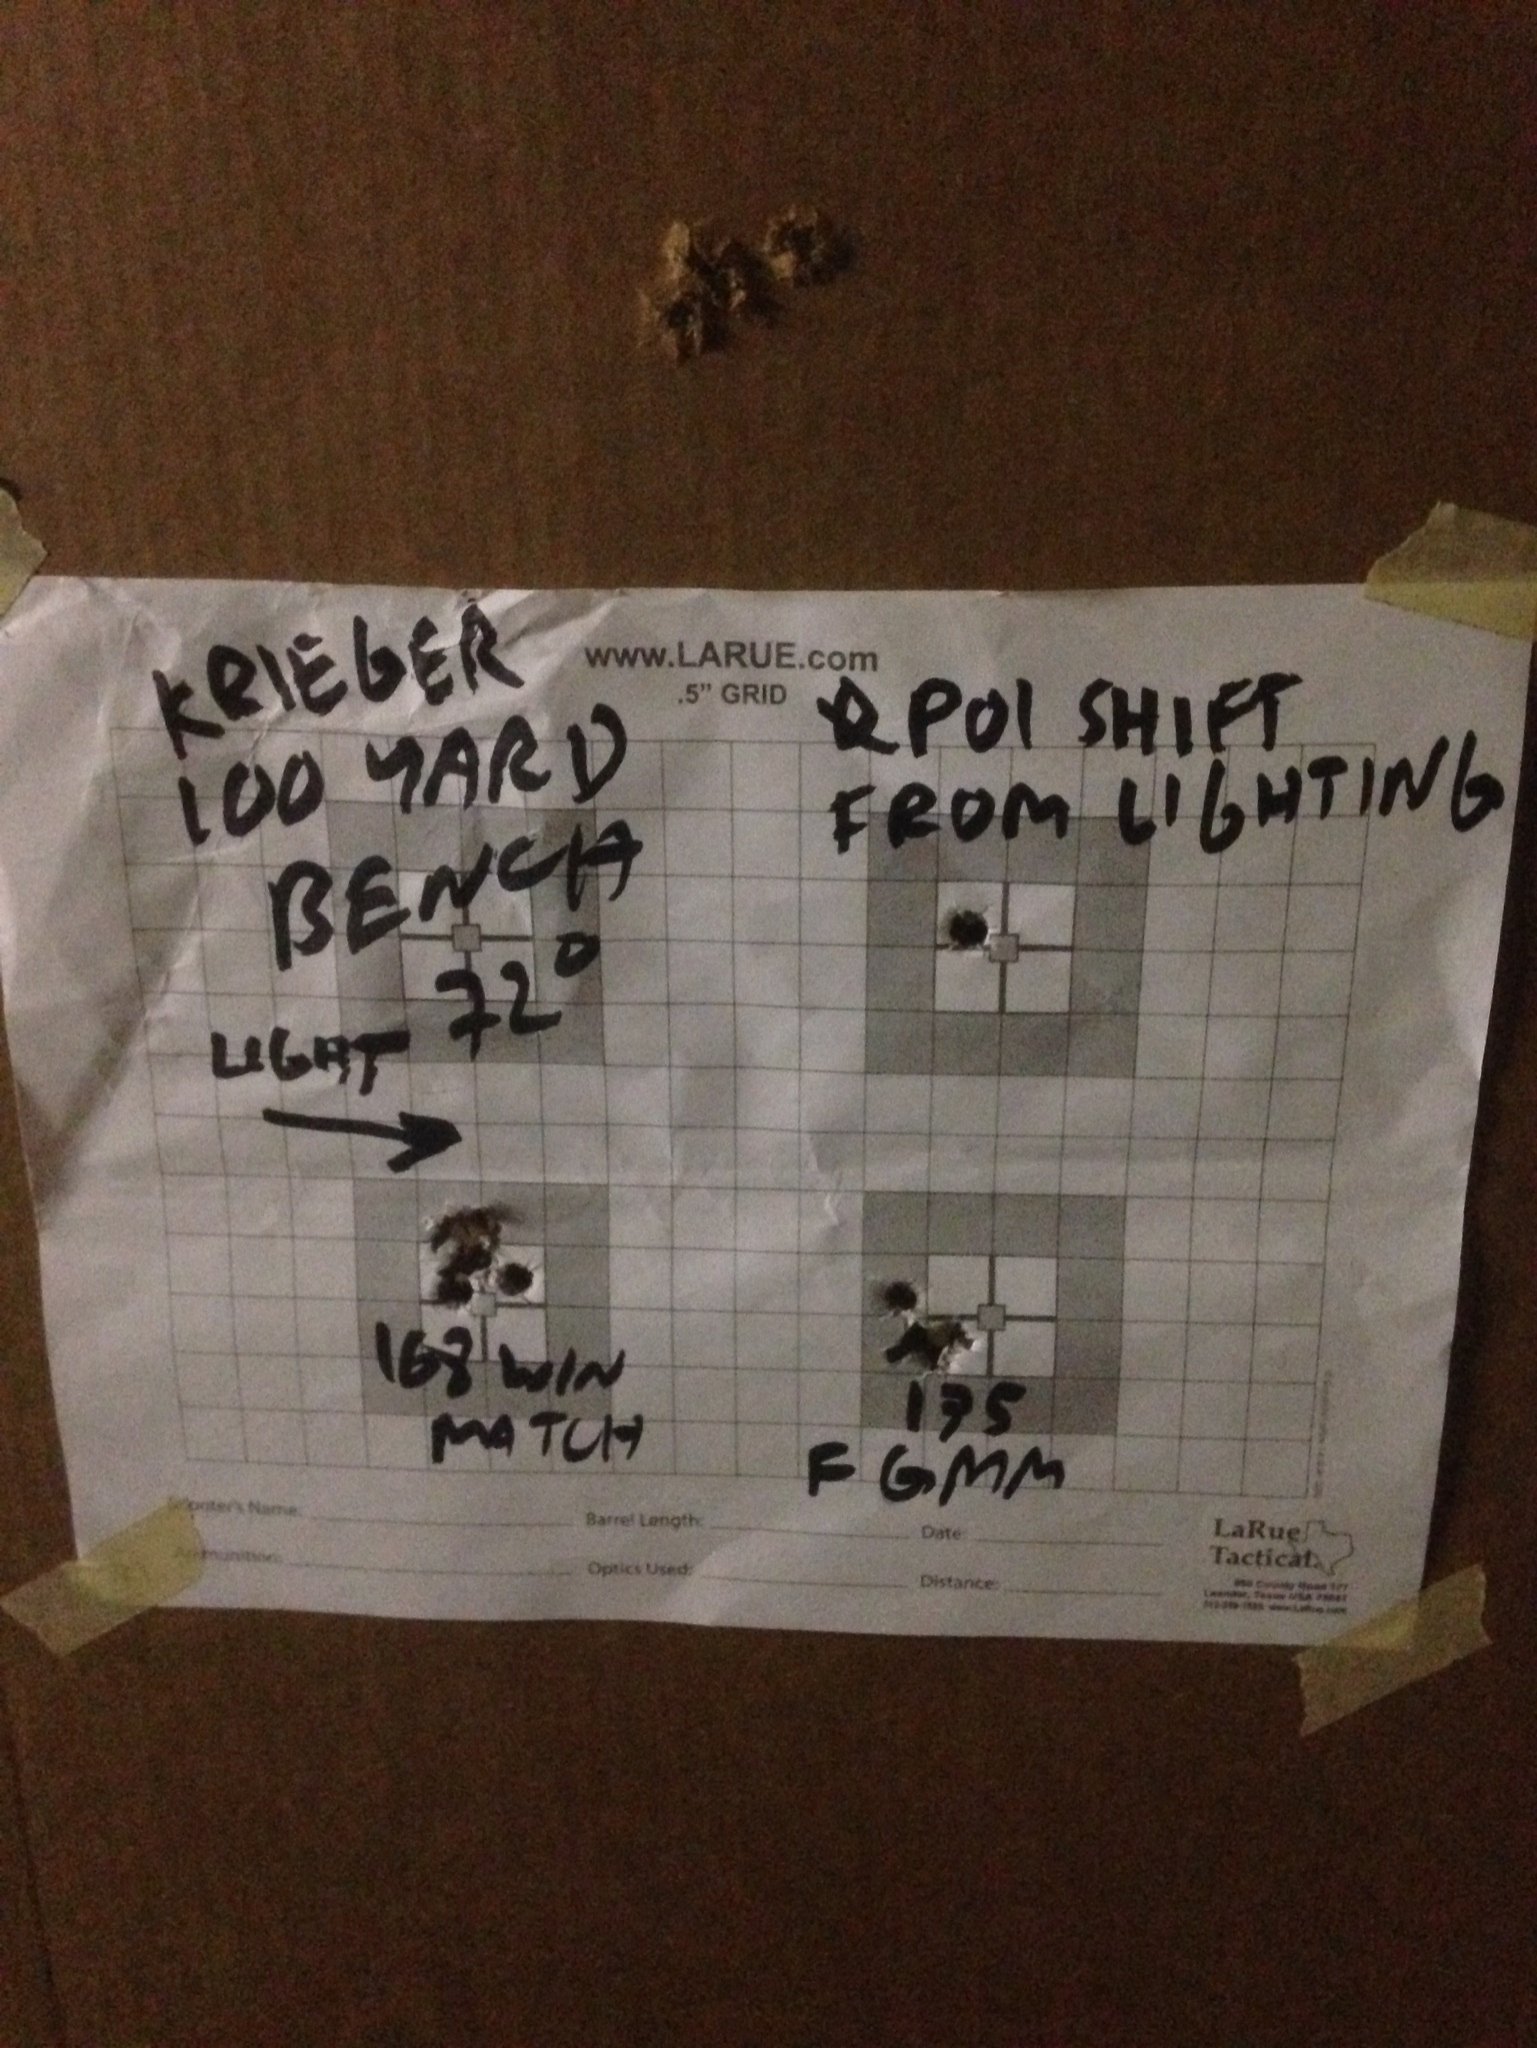 KRIEGER
100 YARD
BENCH
72°
LIGHT
www.LARUE.com
.5" GRID
POI SHIFT
FROM LIGHTING
168 WIN
MATCH
175
FGMM
Shooter's Name:
Barrel Length:
Date:
Ammunition:
Optics Used:
Distance:
LaRue
Tactical